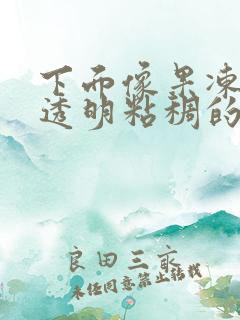 下而像果冻
透明粘稠的
良田三亩
未经同意禁止转载